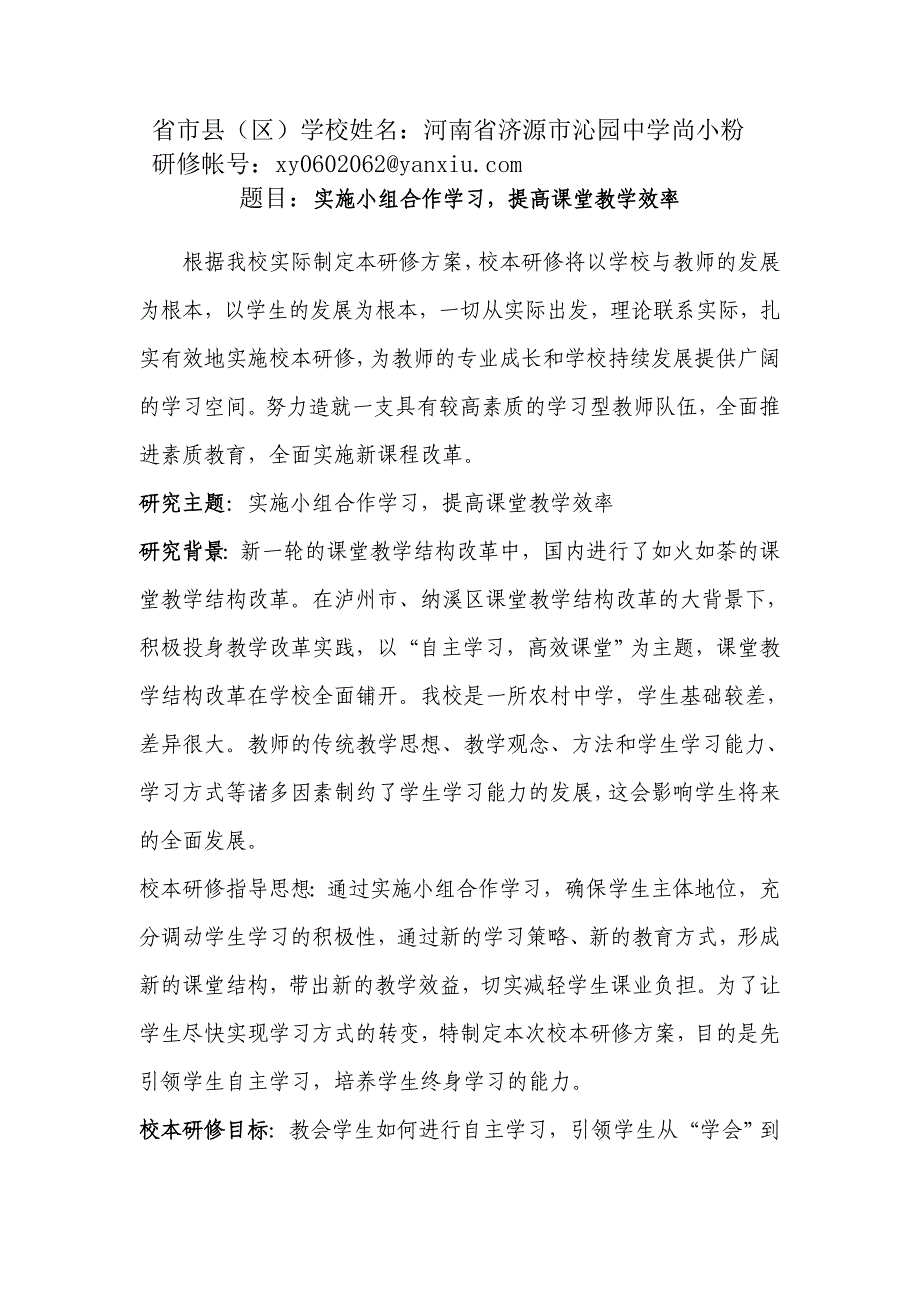 省市县（区）学校姓名：河南省济源市沁园中学尚小粉
研修帐号：xy0602062@yanxiu.com
题目：实施小组合作学习，提高课堂教学效率
根据我校实际制定本研修方案，校本研修将以学校与教师的发展
为根本，以学生的发展为根本，一切从实际出发，理论联系实际，扎
实有效地实施校本研修，为教师的专业成长和学校持续发展提供广阔
的学习空间。努力造就一支具有较高素质的学习型教师队伍，全面推
进素质教育，全面实施新课程改革。
研究主题：实施小组合作学习，提高课堂教学效率
研究背景：新一轮的课堂教学结构改革中，国内进行了如火如荼的课
堂教学结构改革。在泸州市、纳溪区课堂教学结构改革的大背景下，
积极投身教学改革实践，以“自主学习，高效课堂”为主题，课堂教
学结构改革在学校全面铺开。我校是一所农村中学，学生基础较差，
差异很大。教师的传统教学思想、教学观念、方法和学生学习能力、
学习方式等诸多因素制约了学生学习能力的发展，这会影响学生将来
的全面发展。
校本研修指导思想：通过实施小组合作学习，确保学生主体地位，充
分调动学生学习的积极性，通过新的学习策略、新的教育方式，形成
新的课堂结构，带出新的教学效益，切实减轻学生课业负担。为了让
学生尽快实现学习方式的转变，特制定本次校本研修方案，目的是先
引领学生自主学习，培养学生终身学习的能力。
校本研修目标：教会学生如何进行自主学习，引领学生从“学会”到